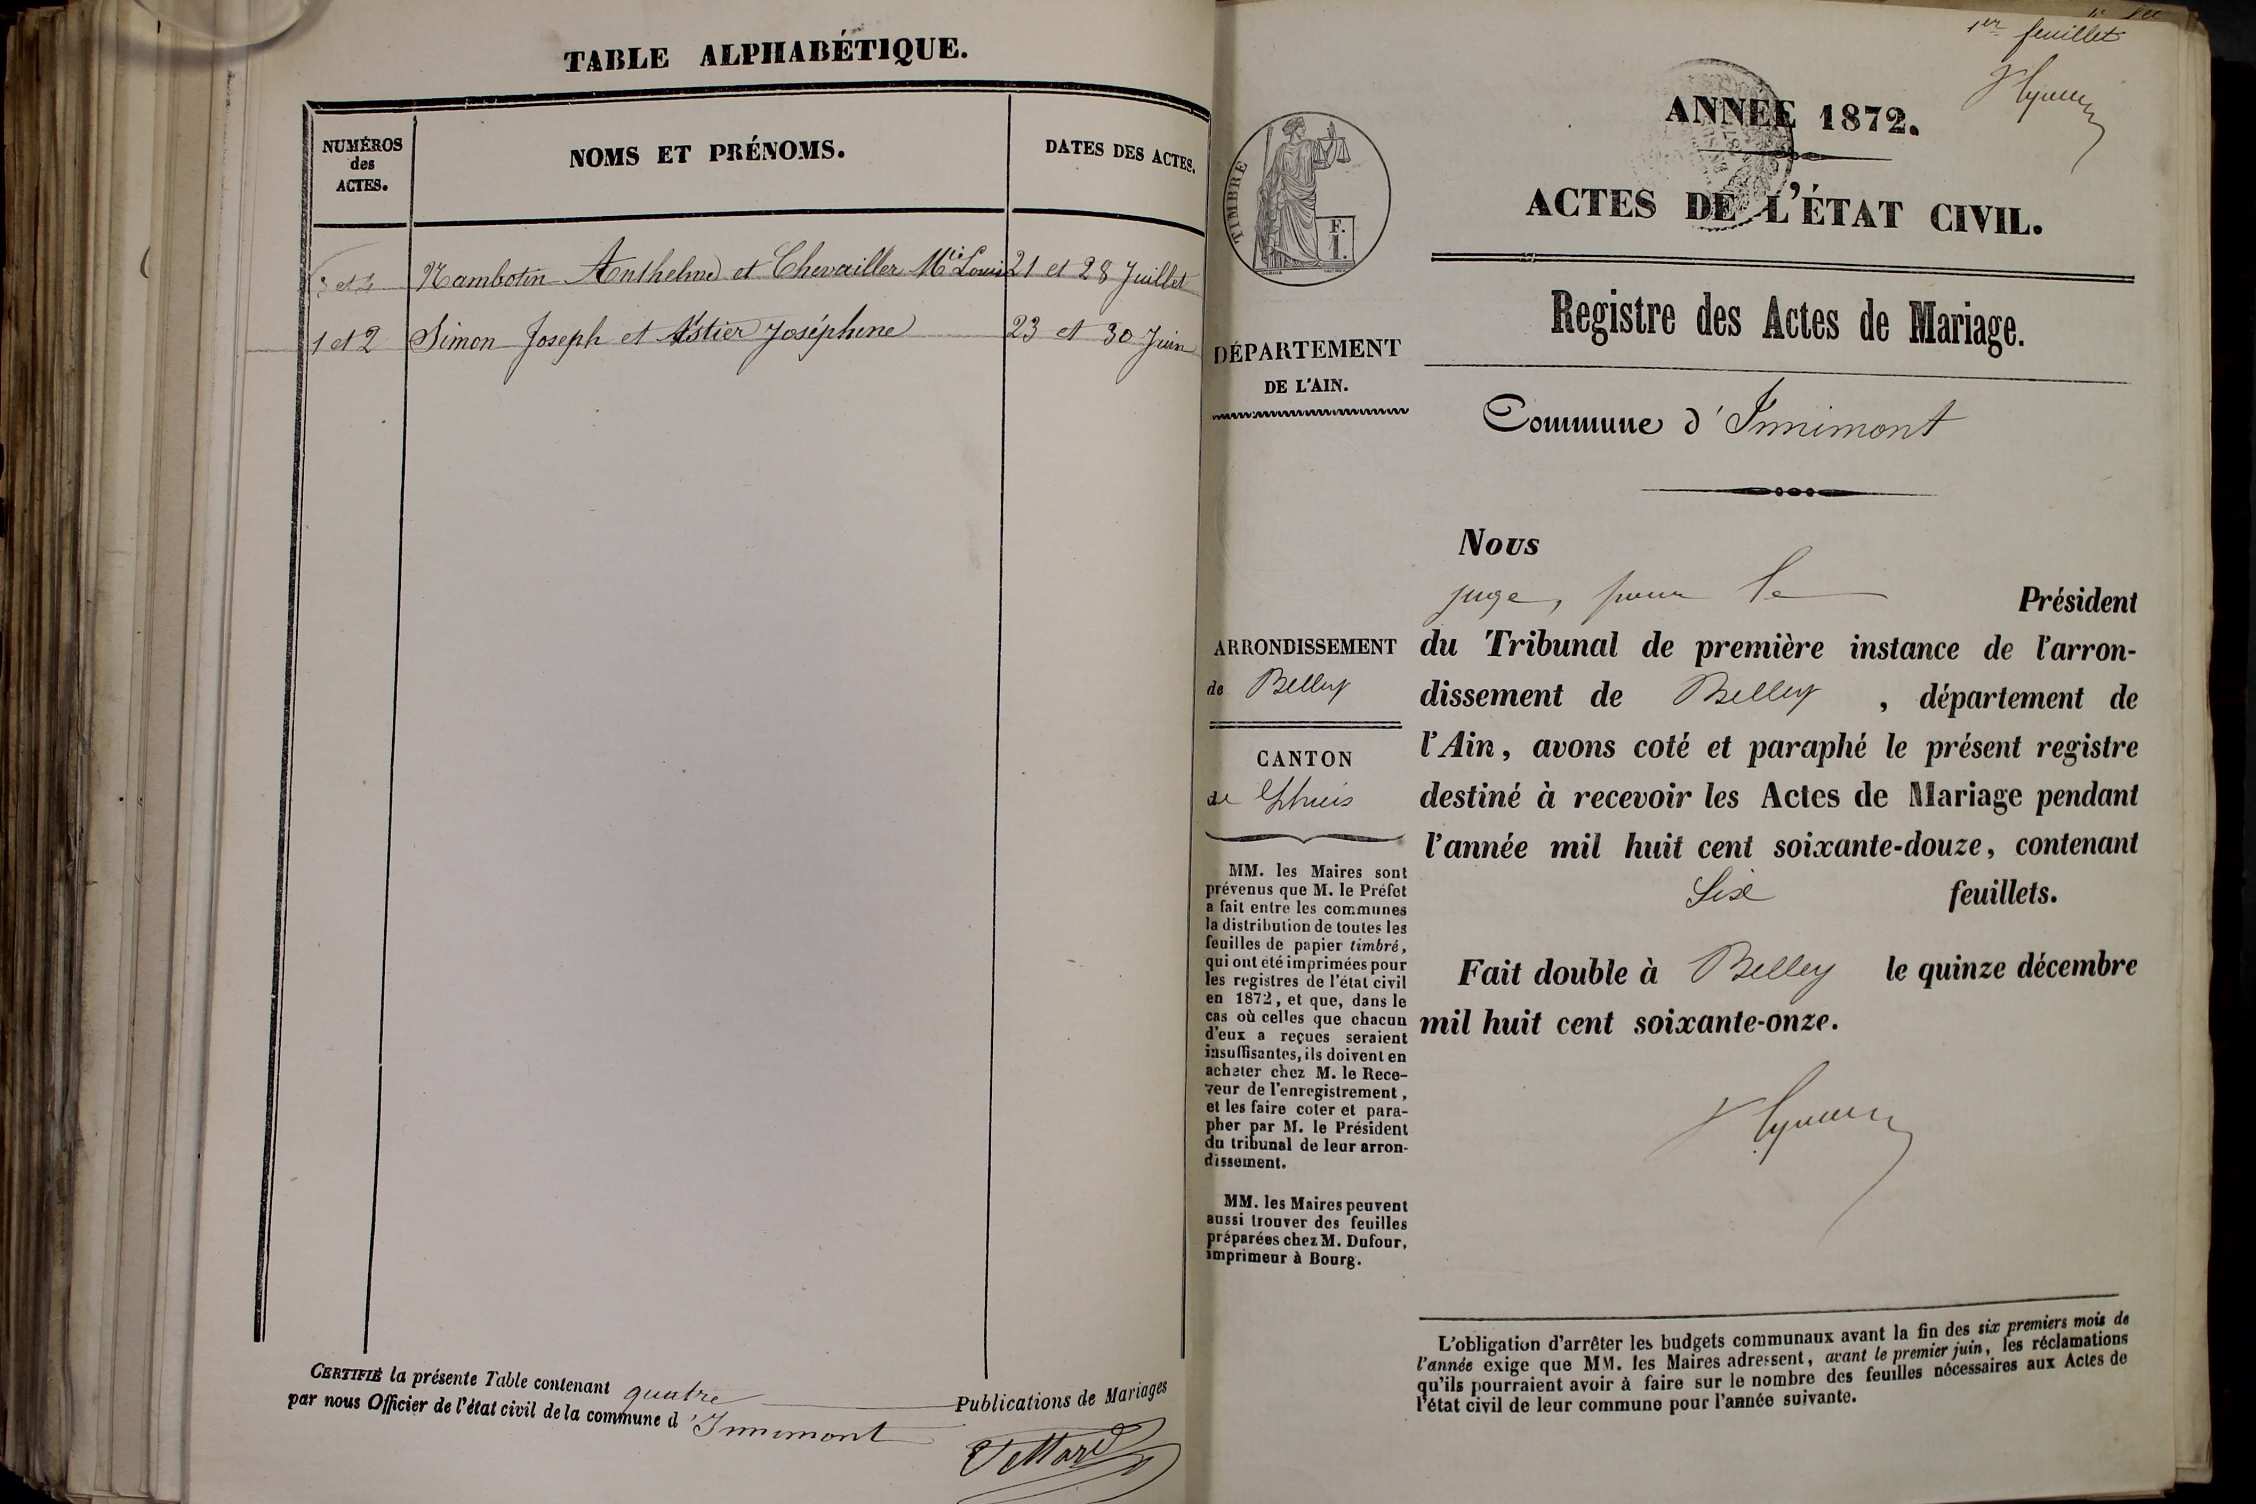 TABLE ALPHABÉTIQUE.
NUMÉROS
des
ACTES.
NOMS ET PRÉNOMS.
DATES DES ACTES.
3 et 4 Nambotin Anthelme et Chevailler Mie Louise 21 et 28 Juillet
1 et 2 Simon Joseph et Astier Joséphine 23 et 30 Juin
CERTIFIÉ la présente Table contenant quatre Publications de Mariages
par nous Officier de l'état civil de la commune d'Innimont
1er feuillet
ANNEE 1872.
ACTES DE L'ÉTAT CIVIL.
TIMBRE
F.
1.
Registre des Actes de Mariage.
DÉPARTEMENT
DE L'AIN.
Commune d'Innimont
Nous
juge, pour le Président
du Tribunal de première instance de l'arron-
dissement de Belley, département de
l'Ain, avons coté et paraphé le présent registre
destiné à recevoir les Actes de Mariage pendant
l'année mil huit cent soixante-douze, contenant
Six feuillets.
Fait double à Belley le quinze décembre
mil huit cent soixante-onze.
ARRONDISSEMENT
de Belley
CANTON
de Lhuis
MM. les Maires sont
prévenus que M. le Préfet
a fait entre les communes
la distribution de toutes les
feuilles de papier timbré,
qui ont été imprimées pour
les registres de l'état civil
en 1872, et que, dans le
cas où celles que chacun
d'eux a reçues seraient
insuffisantes, ils doivent en
acheter chez M. le Rece-
veur de l'enregistrement,
et les faire coter et para-
pher par M. le Président
du tribunal de leur arron-
dissement.
MM. les Maires peuvent
aussi trouver des feuilles
préparées chez M. Dufour,
imprimeur à Bourg.
L'obligation d'arrêter les budgets communaux avant la fin des six premiers mois de
l'année exige que MM. les Maires adressent, avant le premier juin, les réclamations
qu'ils pourraient avoir à faire sur le nombre des feuilles nécessaires aux Actes de
l'état civil de leur commune pour l'année suivante.